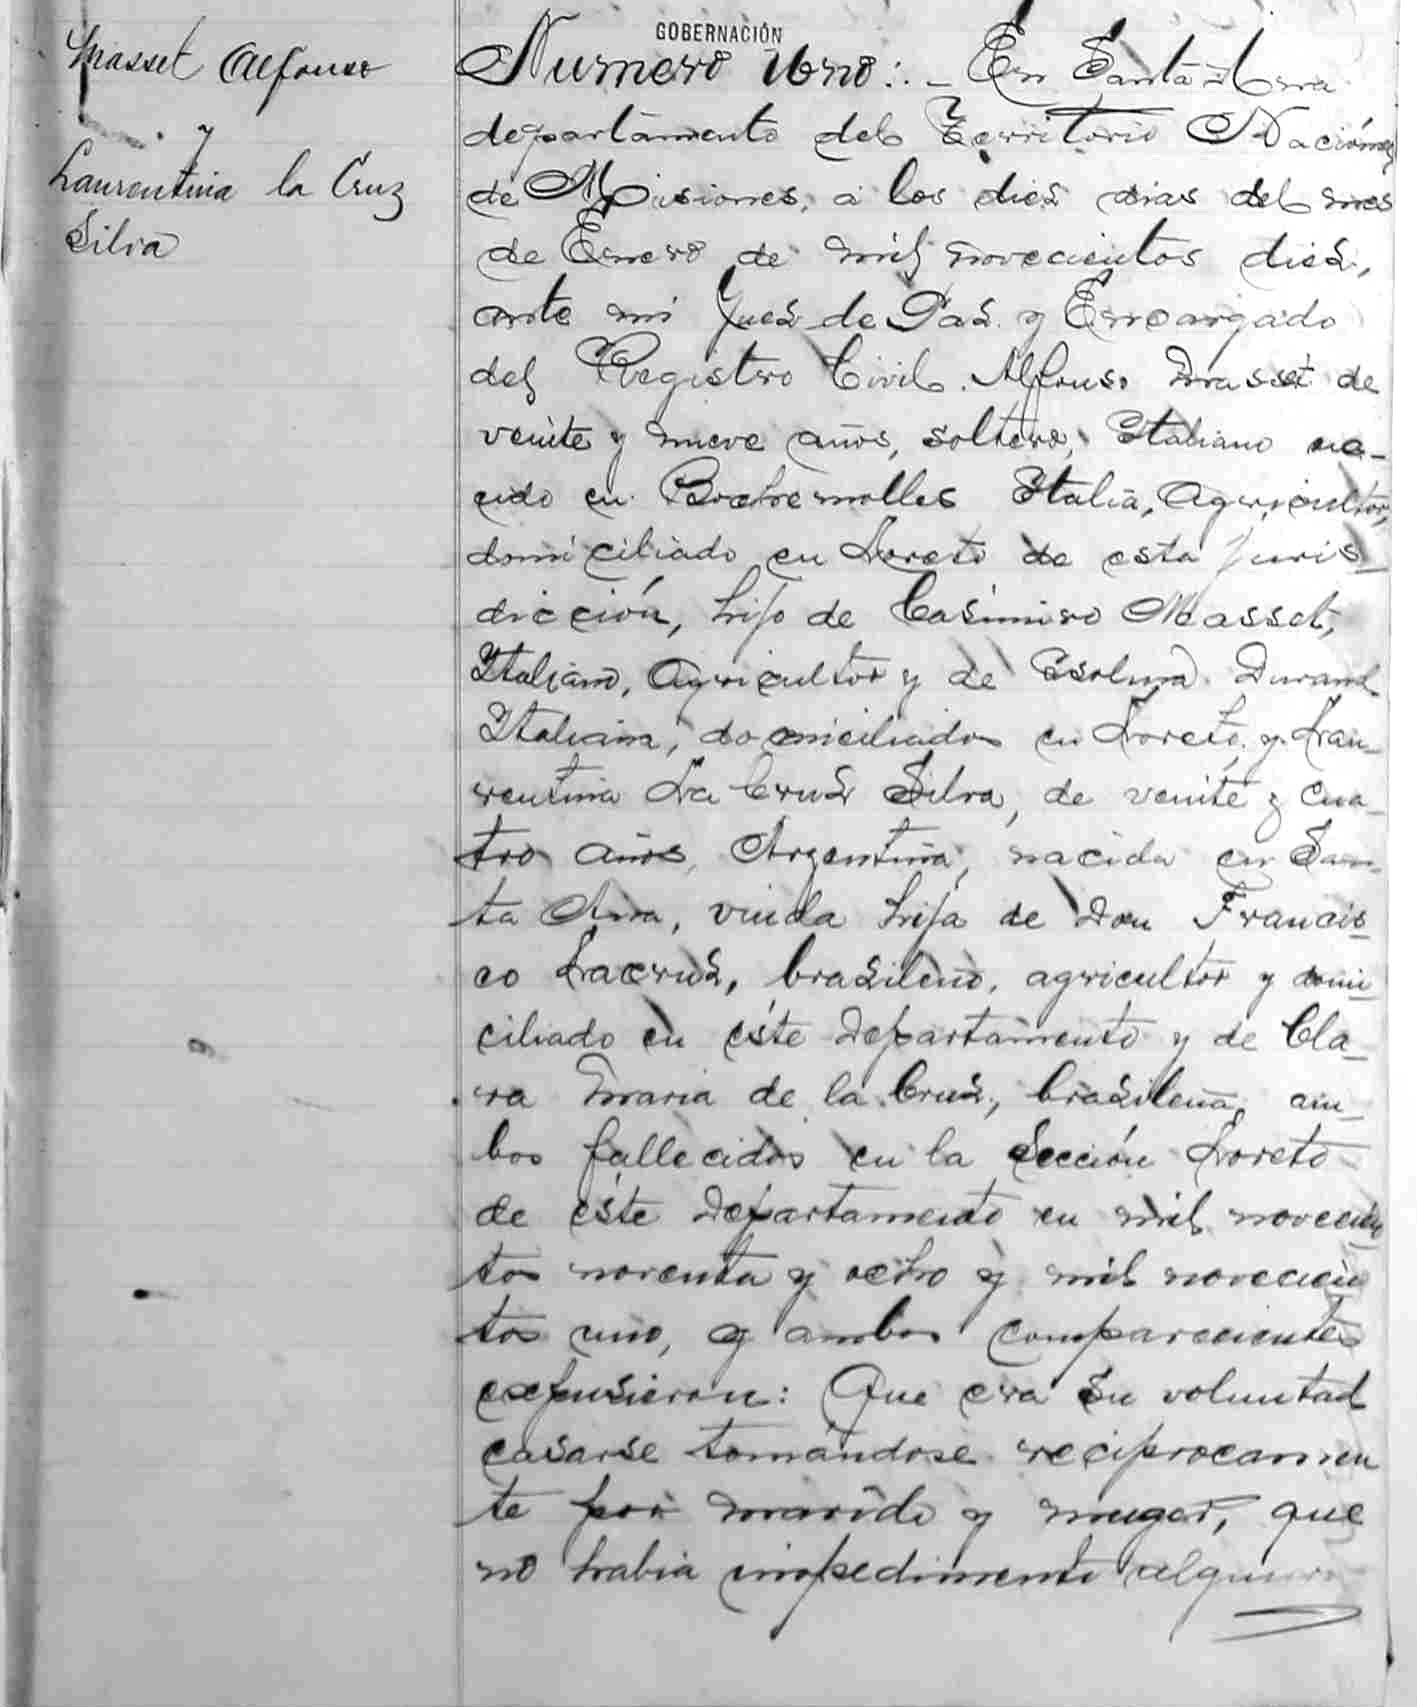 Masset Alfonso
y
Laurentina la Cruz
Silva
GOBERNACIÓN
Numero Uno:.- En Santa Ana
departamento del Territorio Nacional
de Misiones, a los diez dias del mes
de Enero de mil novecientos diez,
ante mi Juez de Paz y Encargado
del Registro Civil. Alfonso Masset de
veinte y nueve años, soltero, Italiano na-
cido en Italia, Agricultor,
domiciliado en Loreto de esta juris-
dicción, hijo de Casimiro Masset,
Italiano, Agricultor y de Durand
Italiana, domiciliados en Loreto, y Lau-
rentina La Cruz Silva, de veinte y cua-
tro años, Argentina, nacida en San-
ta Ana, viuda hija de Don Francis-
co Lacruz, brazileno, agricultor y domi-
ciliado en éste Departamento y de Cla-
ra Maria de la Cruz, brazileña, am-
bos fallecidos en la Sección Loreto
de éste Departamento en mil novecien
tos noventa y ocho y mil novecien
tos uno, y ambos comparecientes
expusieron: Que era su voluntad
casarse tomándose reciprocamen
te por marido y muger, que
no habia impedimento alguno